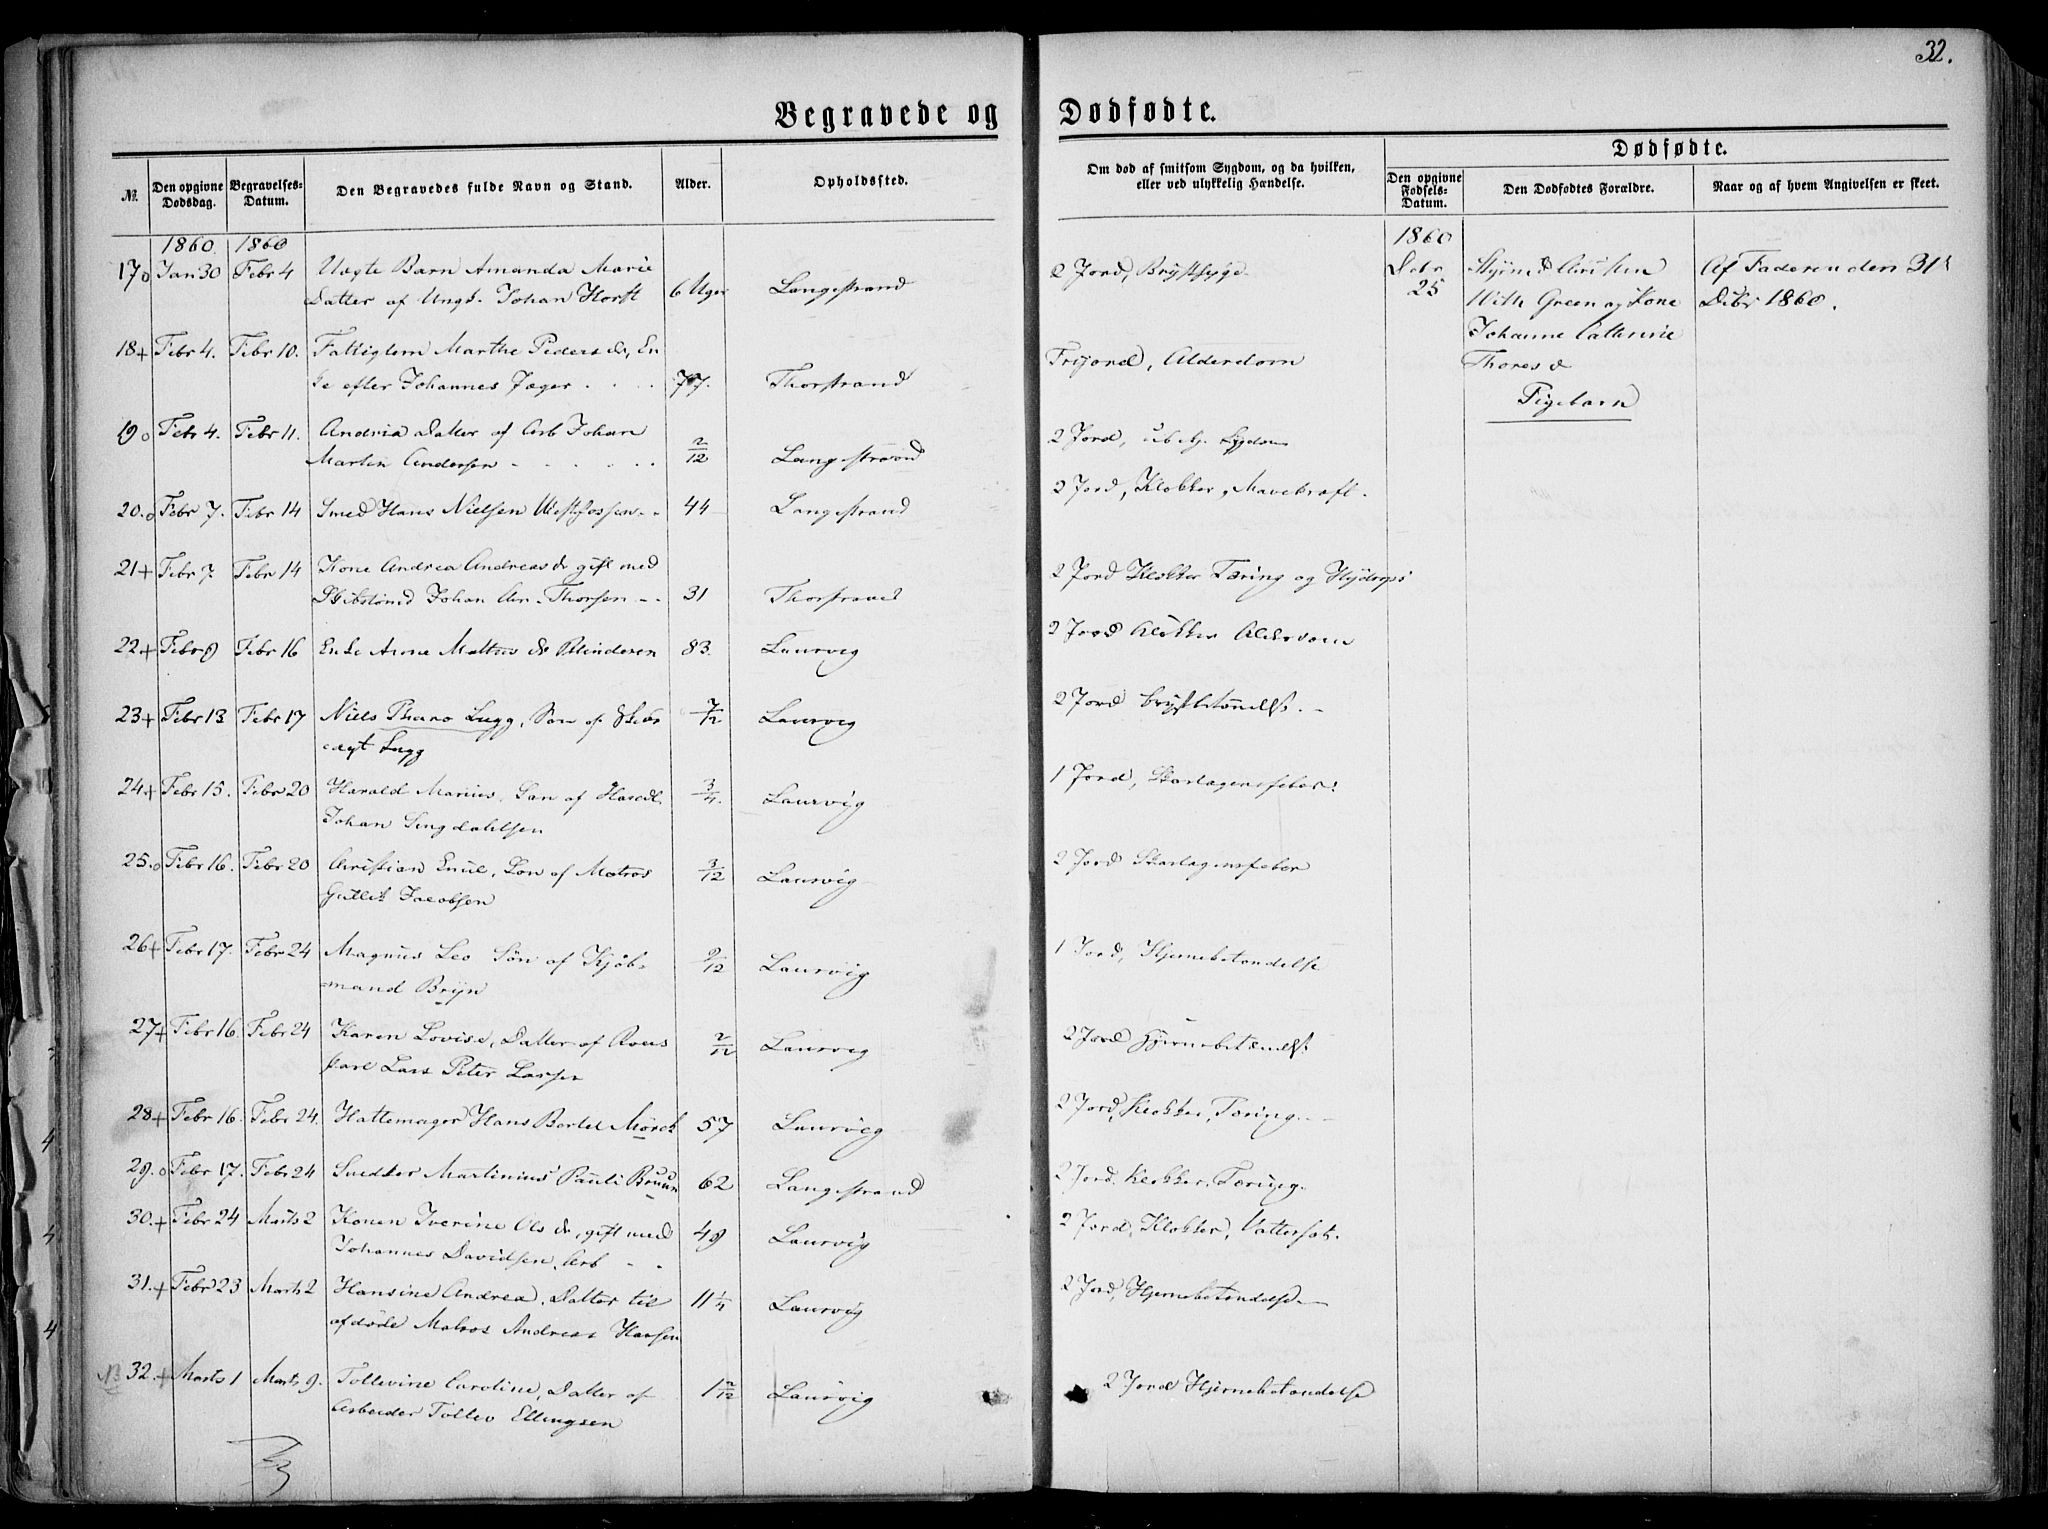 32.
Begravede og Dødfødte.
№
Den opgivne Dødsdag.
Begravelses-Datum.
Den Begravedes fulde Navn og Stand.
Alder.
Opholdssted.
Om død af smitsom Sygdom, og da hvilken,
eller ved ulykkelig Hændelse.
Dødfødte.
Den opgivne Fødsels-Datum.
Den Dødfødtes Forældre.
Naar og af hvem Angivelsen er skeet.
1860 1860
17 o Jan 30 Febr 4 Uægte Barn Amanda Marie
Datter af Ungk. Johan Horst 6 Uger Langestrand 2 Jord, Brystsyge
18 + Febr 4. Febr 10. Fattiglem Marthe Peders d, En
ke efter Johannes Jæger 77. Thorstrand Frijord, Alderdom
19 o Febr 4. Febr 11. Andrea Datter af Arb Johan
Martin Andersen 2/12 Langestrand 2 Jord, Sygdom
20. o Febr 7. Febr 14 Smed Hans Nielsen 44 Langestrand 2 Jord, Klokker, Mavekræft.
21 + Febr 7 Febr 14 Kone Andrea Andreas dr gift med
Johan Chr. Thorsen 31 Thorstrand 2 Jord Klokker Tæring og
22 + Febr 9 Febr 16 Enke Anna 83. Laurvig 2 Jord Klokker Alderdom
23 + Febr 13 Febr 17 Niels Tharo Lugg, Søn af
Lugg 7/12 Laurvig 2 Jord Brystbetændelse.
24 + Febr 15. Febr 20 Harald Marius, Søn af
Johan 3/4. Laurvig 1 Jord, Skarlagensfeber.
25. o Febr 16. Febr 20 Christian Emil, Søn af Matros
Gullik Jacobsen 3/12 Laurvig 2 Jord Skarlagensfeber
26 + Febr 17. Febr 24 Magnus Leo Søn af Kjøb-
mand Bryn 9/12 Laurvig 1 Jord, Hjernebetændelse
27 + Febr 16. Febr 24 Karen Lovise, Datter af
Lars Peter Larsen 2/12 Laurvig 2 Jord Hjernebetændelse
28 + Febr 16. Febr 24. Hattemager Hans Bertel Mørch 57 Laurvig 2 Jord, Klokker, Tæring.
29. o Febr 17. Febr 24 Snedker Martinius Pauli Bruun 62 Langestrand 2 Jord, Klokker, Tæring.
30. + Febr 24 Marts 2 Konen Iverine Ols dr, gift med
Johannes Davidsen, Arb 49 Laurvig 2 Jord, Klokker, Vattersot.
31. + Febr 23 Marts 2 Hansine Andrea, Datter til
afdøde Matros Andreas Hansen 11 1/4 Laurvig 2 Jord, Hjernebetændelse
32. + Marts 1 Marts 9. Tollevine Caroline, Datter af
Arbeider Tollev Ellingsen 1 2/12 Laurvig 2 Jord Hjernebetændelse
1860
Debr
25
With Green og Kone
Johanne Cathrine
Thores d
Pigebarn
Af Faderen den 31t
Debr 1860.